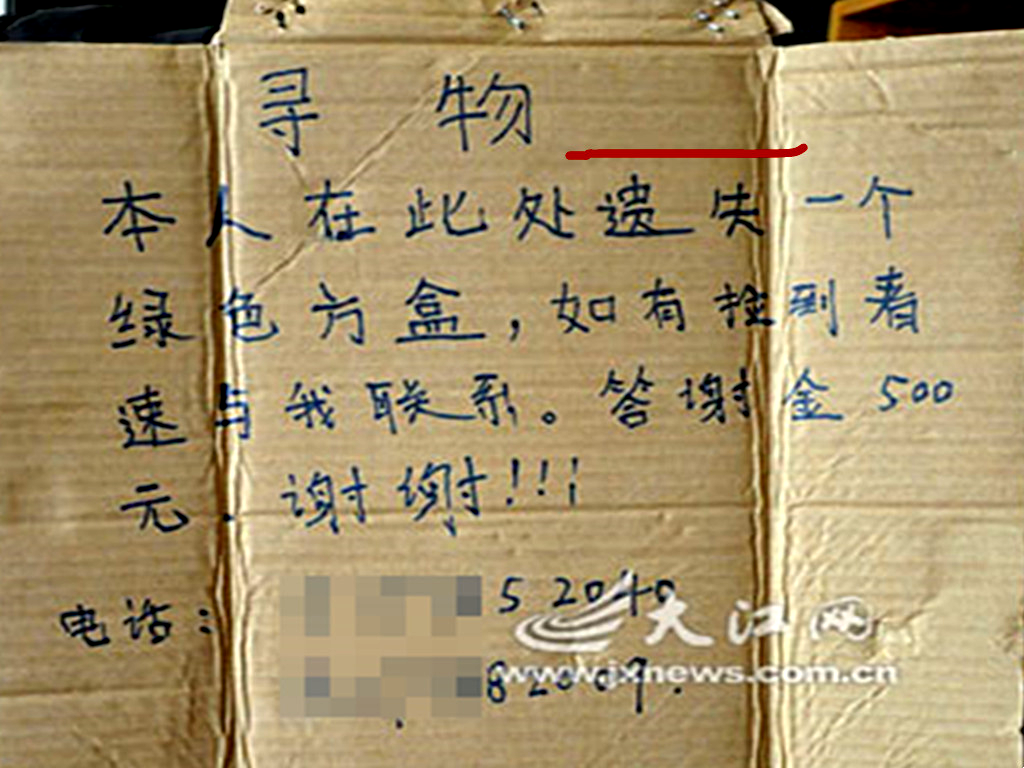 寻 物
本人在此处遗失一个
绿色方盒，如有捡到者
速与我联系。答谢金500
元. 谢谢!!!
电话： 52040
82009.
大江网
www.jxnews.com.cn